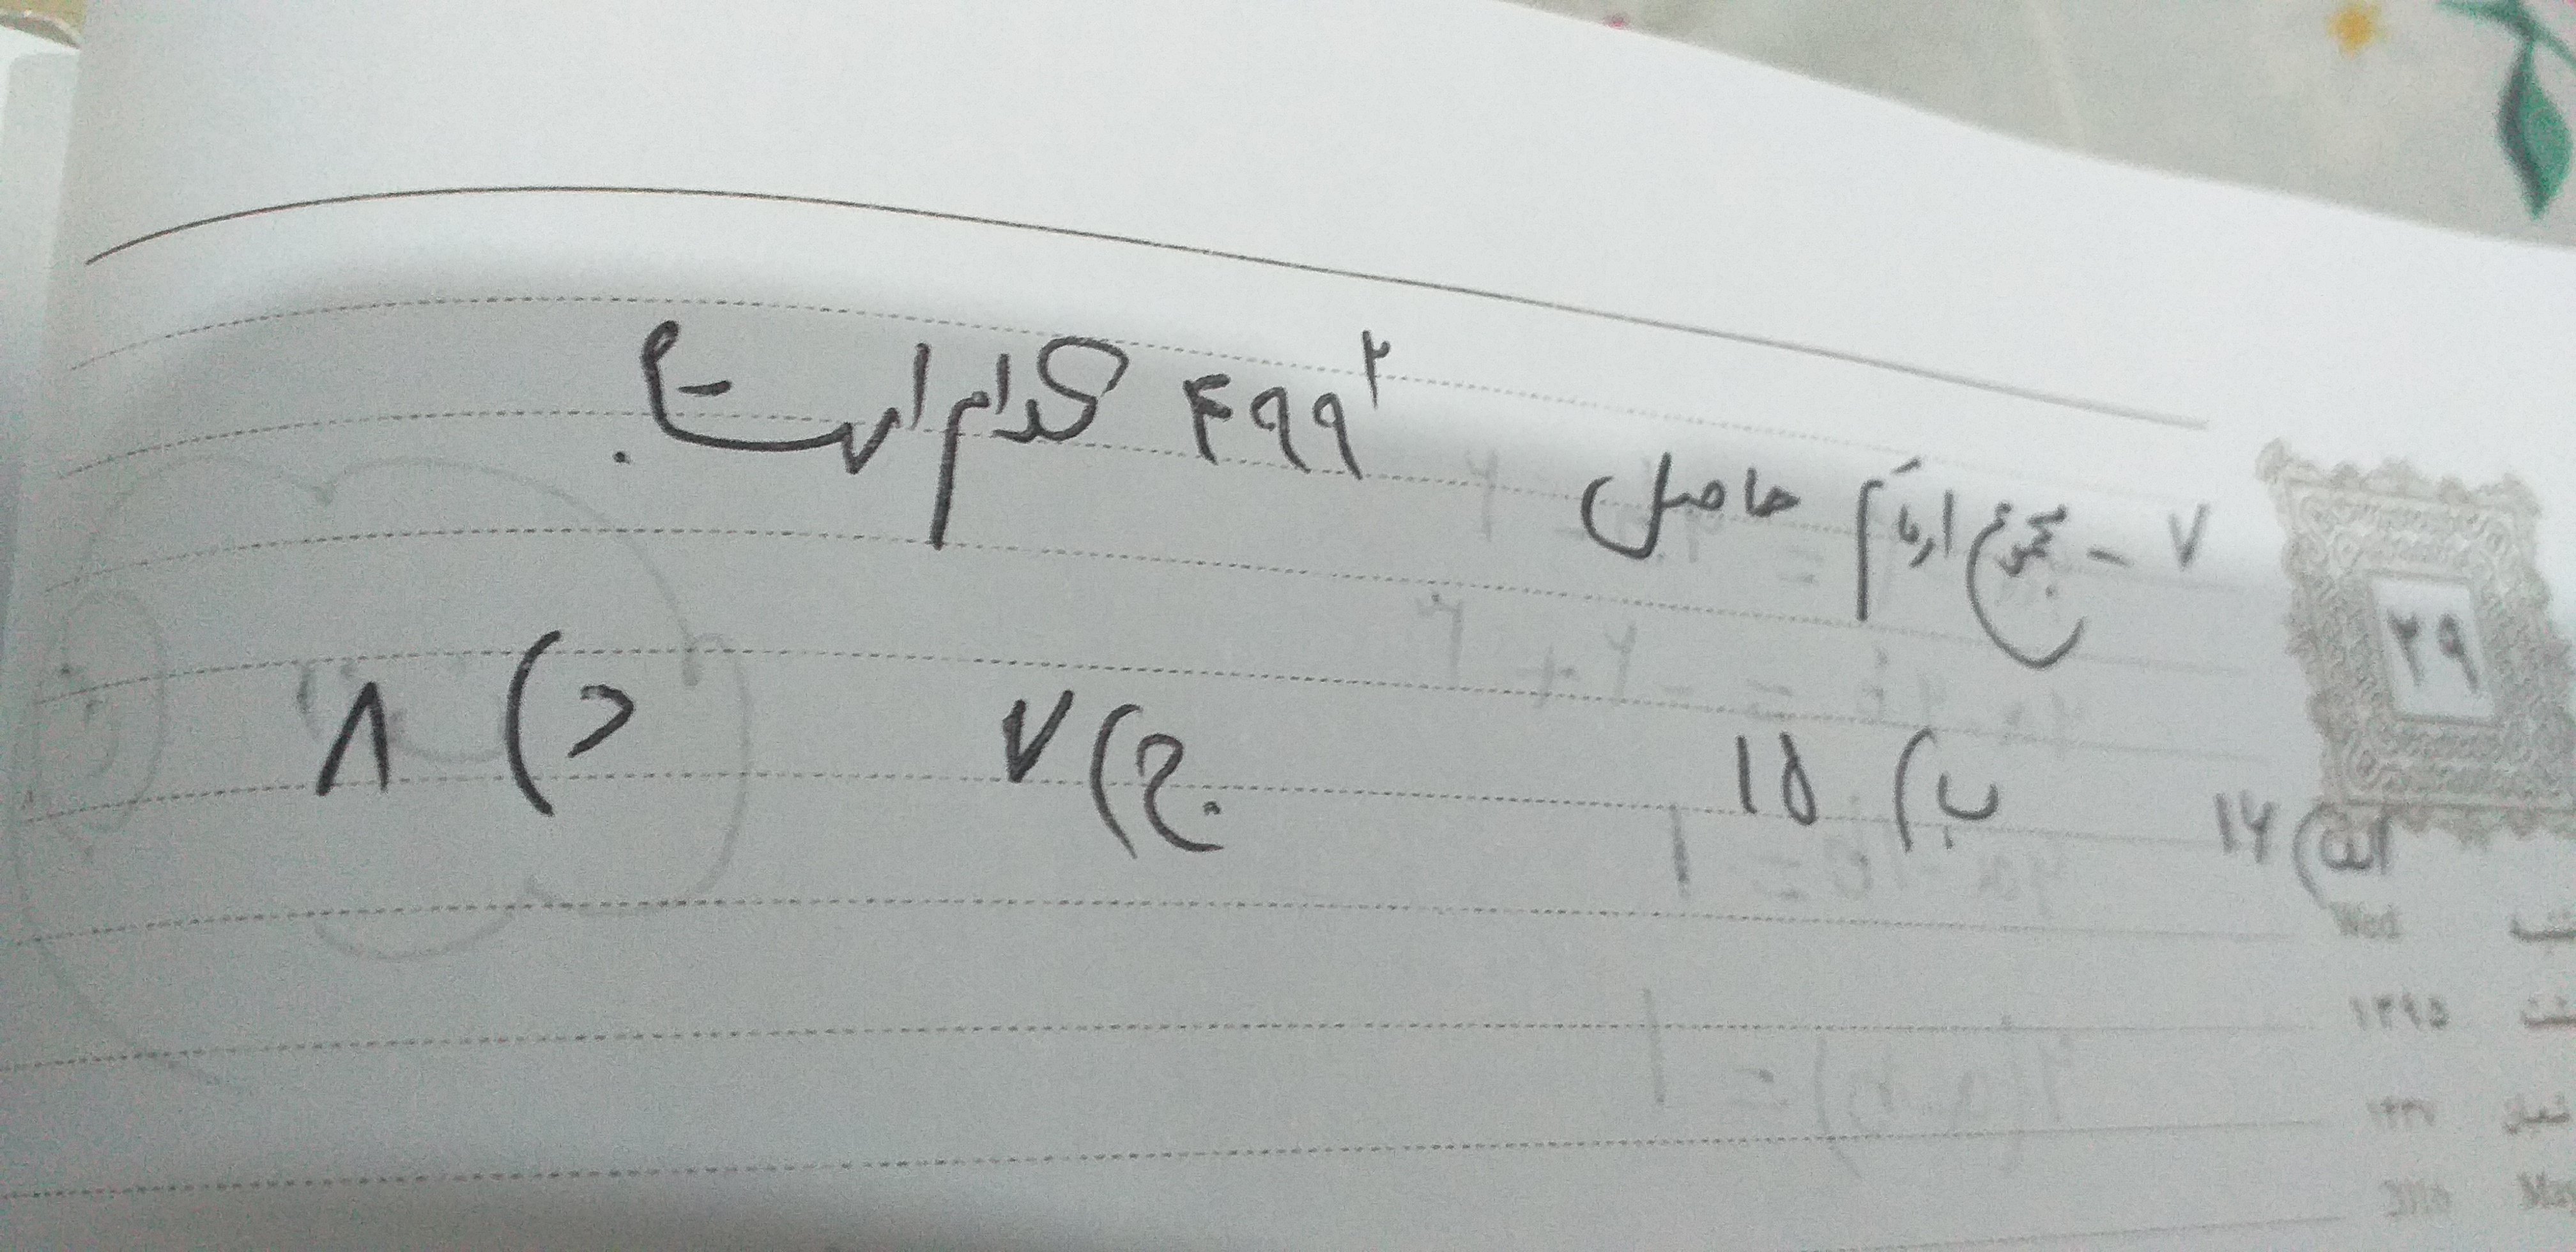 ۷ - مجموع ارقام حاصل ۴۹۹^۲ کدام است.
الف) ۱۶ ب) ۱۵ ج) ۷ د) ۸
۲۹
Wed
۱۳۹۵
۱۴۳۷ شعبان
2016 Ma